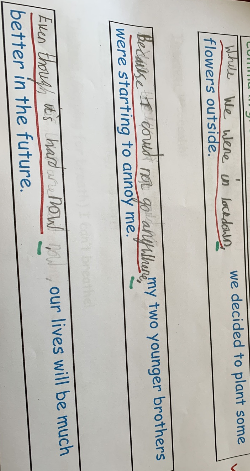 While we were in lockdown, we decided to plant some
flowers outside.
Because I could not go anywhere, my two younger brothers
were starting to annoy me.
Even though it's hard now, our lives will be much
better in the future.